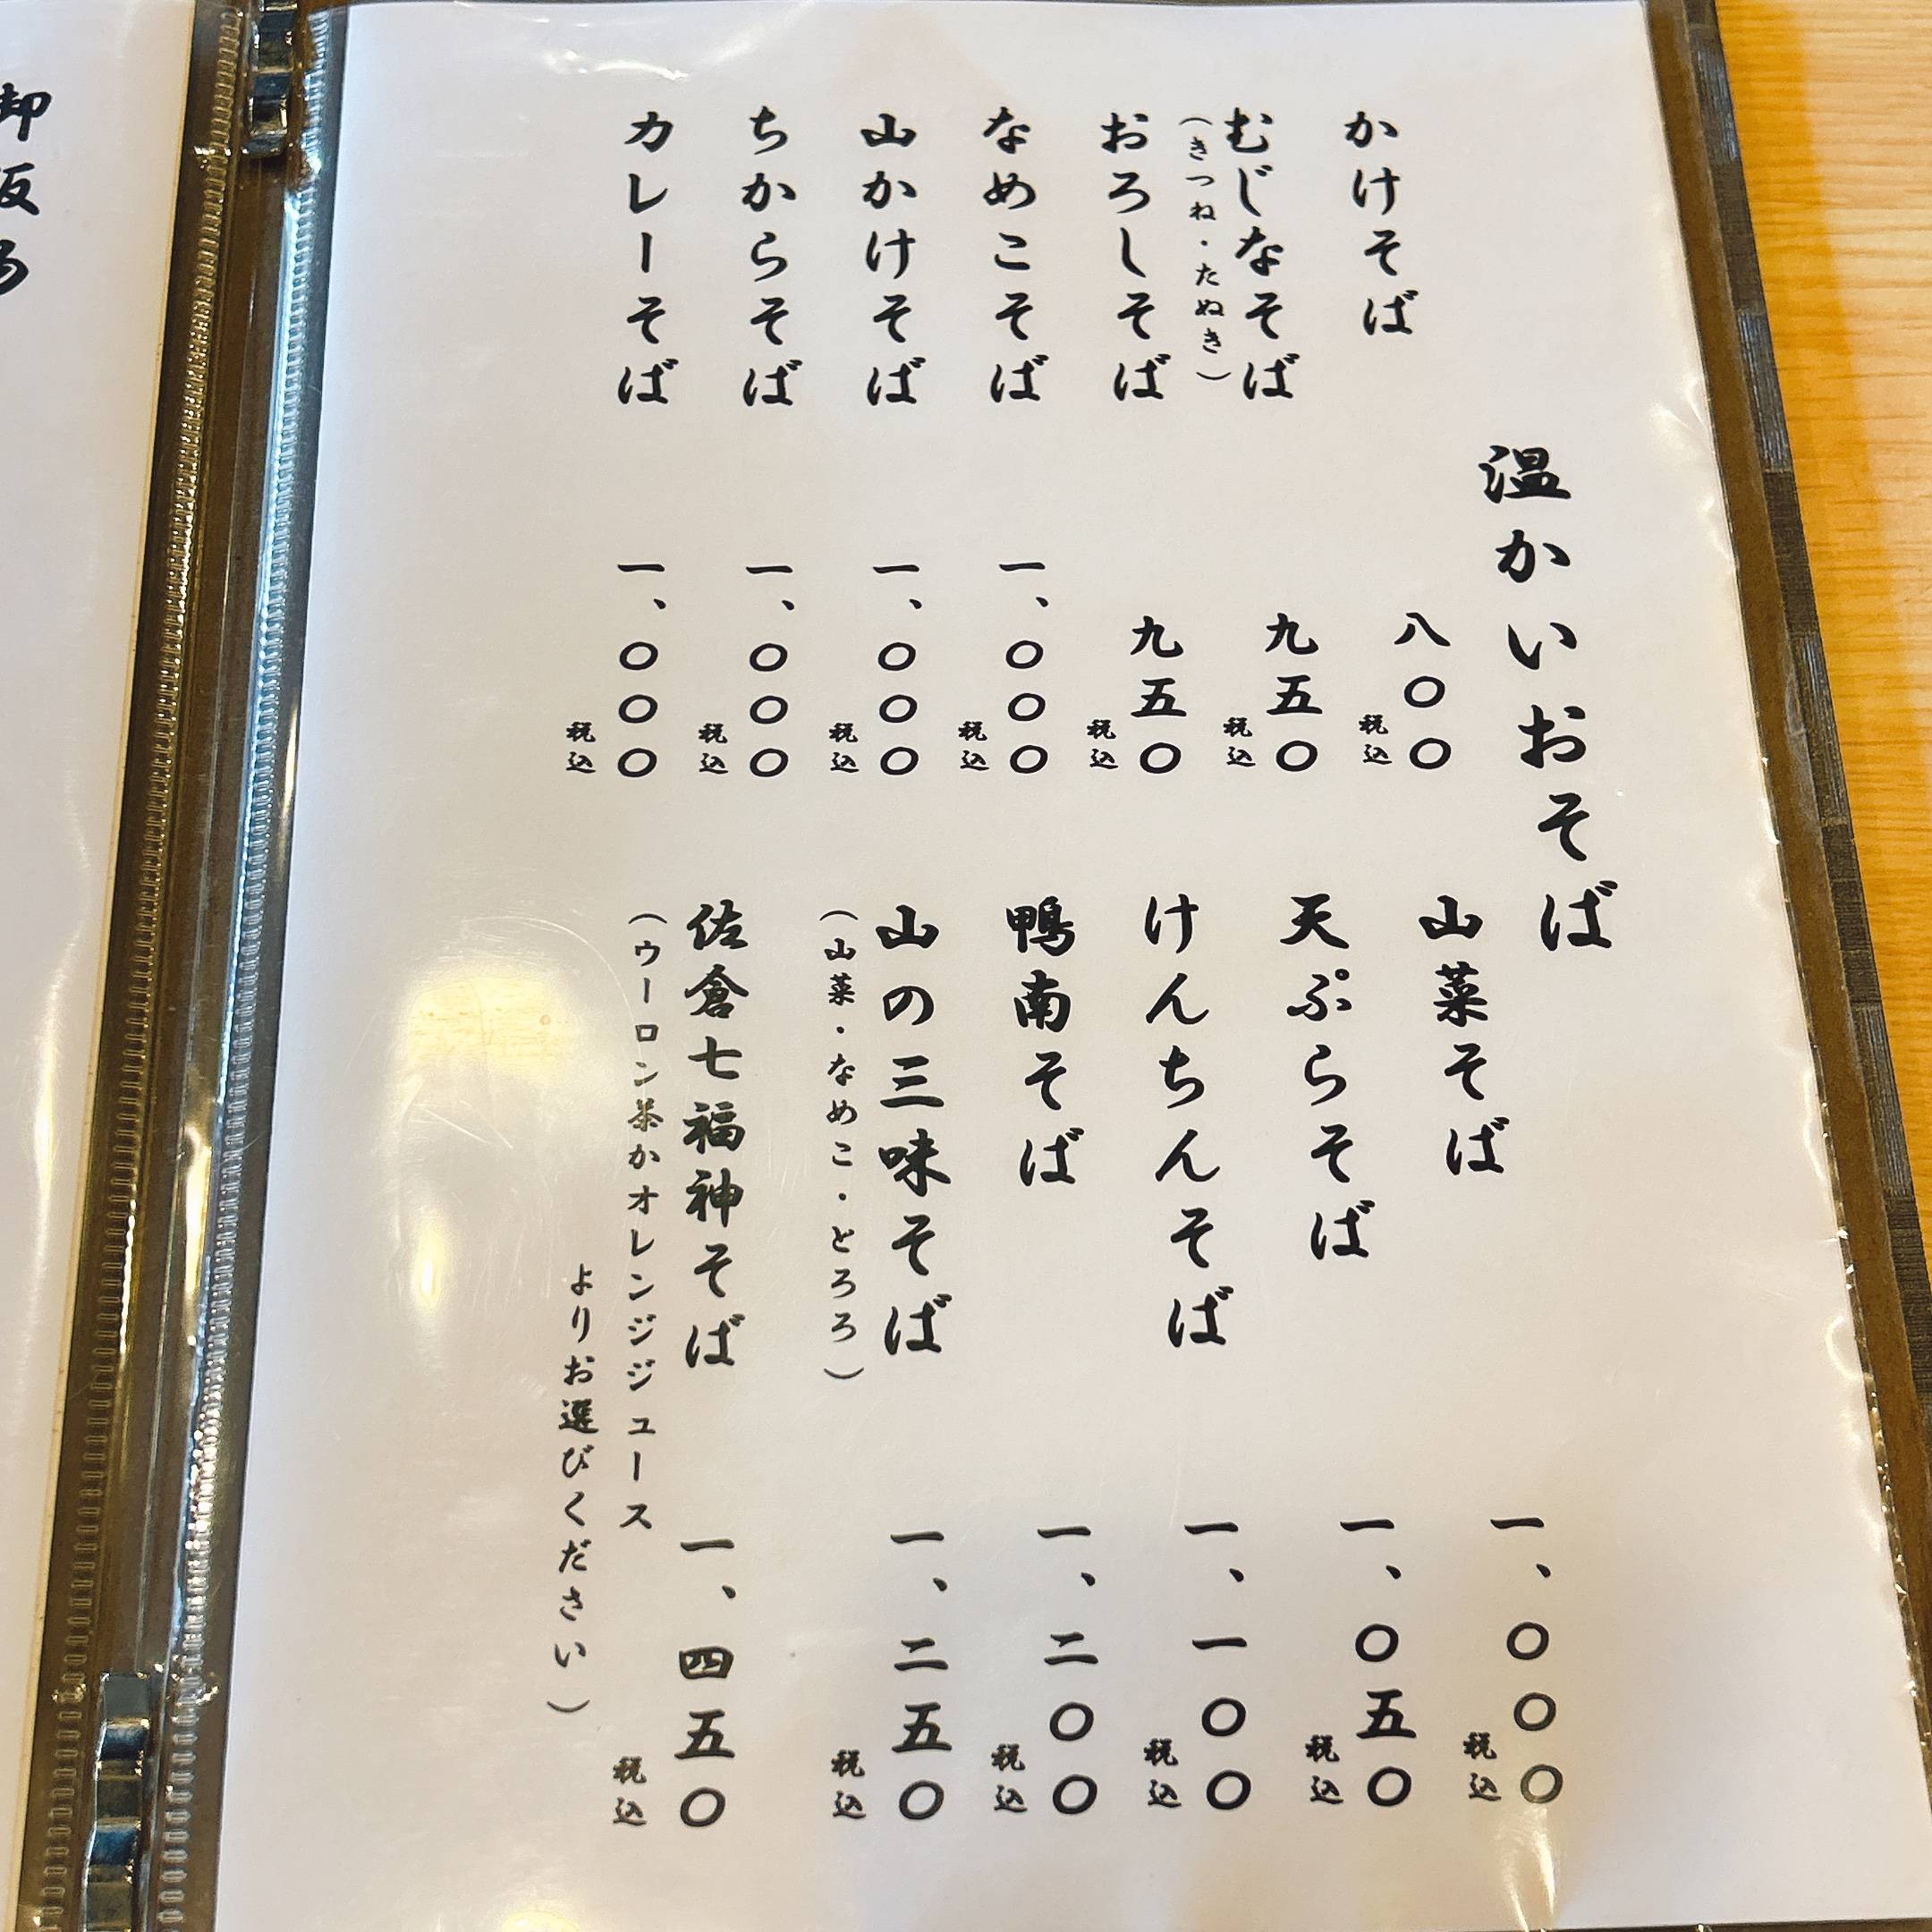 温かいおそば
かけそば 八〇〇 税込
むじなそば 九五〇 税込
(きつね・たぬき)
おろしそば 九五〇 税込
なめこそば 一、〇〇〇 税込
山かけそば 一、〇〇〇 税込
ちからそば 一、〇〇〇 税込
カレーそば 一、〇〇〇 税込
山菜そば 一、〇〇〇 税込
天ぷらそば 一、〇五〇 税込
けんちんそば 一、一〇〇 税込
鴨南そば 一、二〇〇 税込
山の三味そば 一、二五〇 税込
(山菜・なめこ・とろろ)
佐倉七福神そば 一、四五〇 税込
(ウーロン茶かオレンジジュース
よりお選びください)